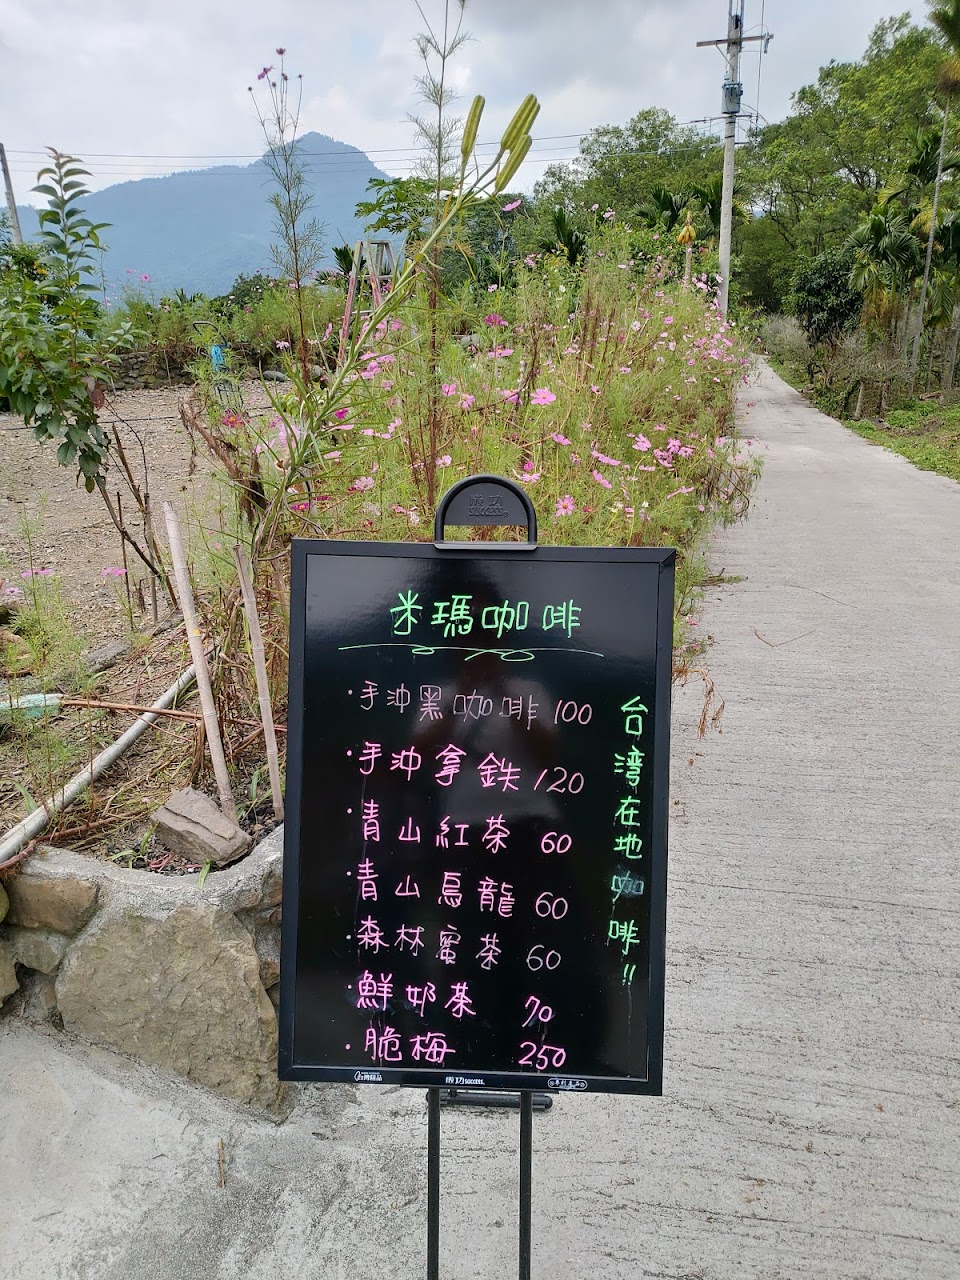 成功
SUCCESS®
米瑪咖啡
·手沖黑咖啡 100
·手沖拿鉄 120
·青山紅茶 60
·青山烏龍 60
·森林蜜茶 60
·鮮奶茶 70
·脆梅 250
台湾在地咖啡!!
台灣精品
成功 SUCCESS.
專利產品